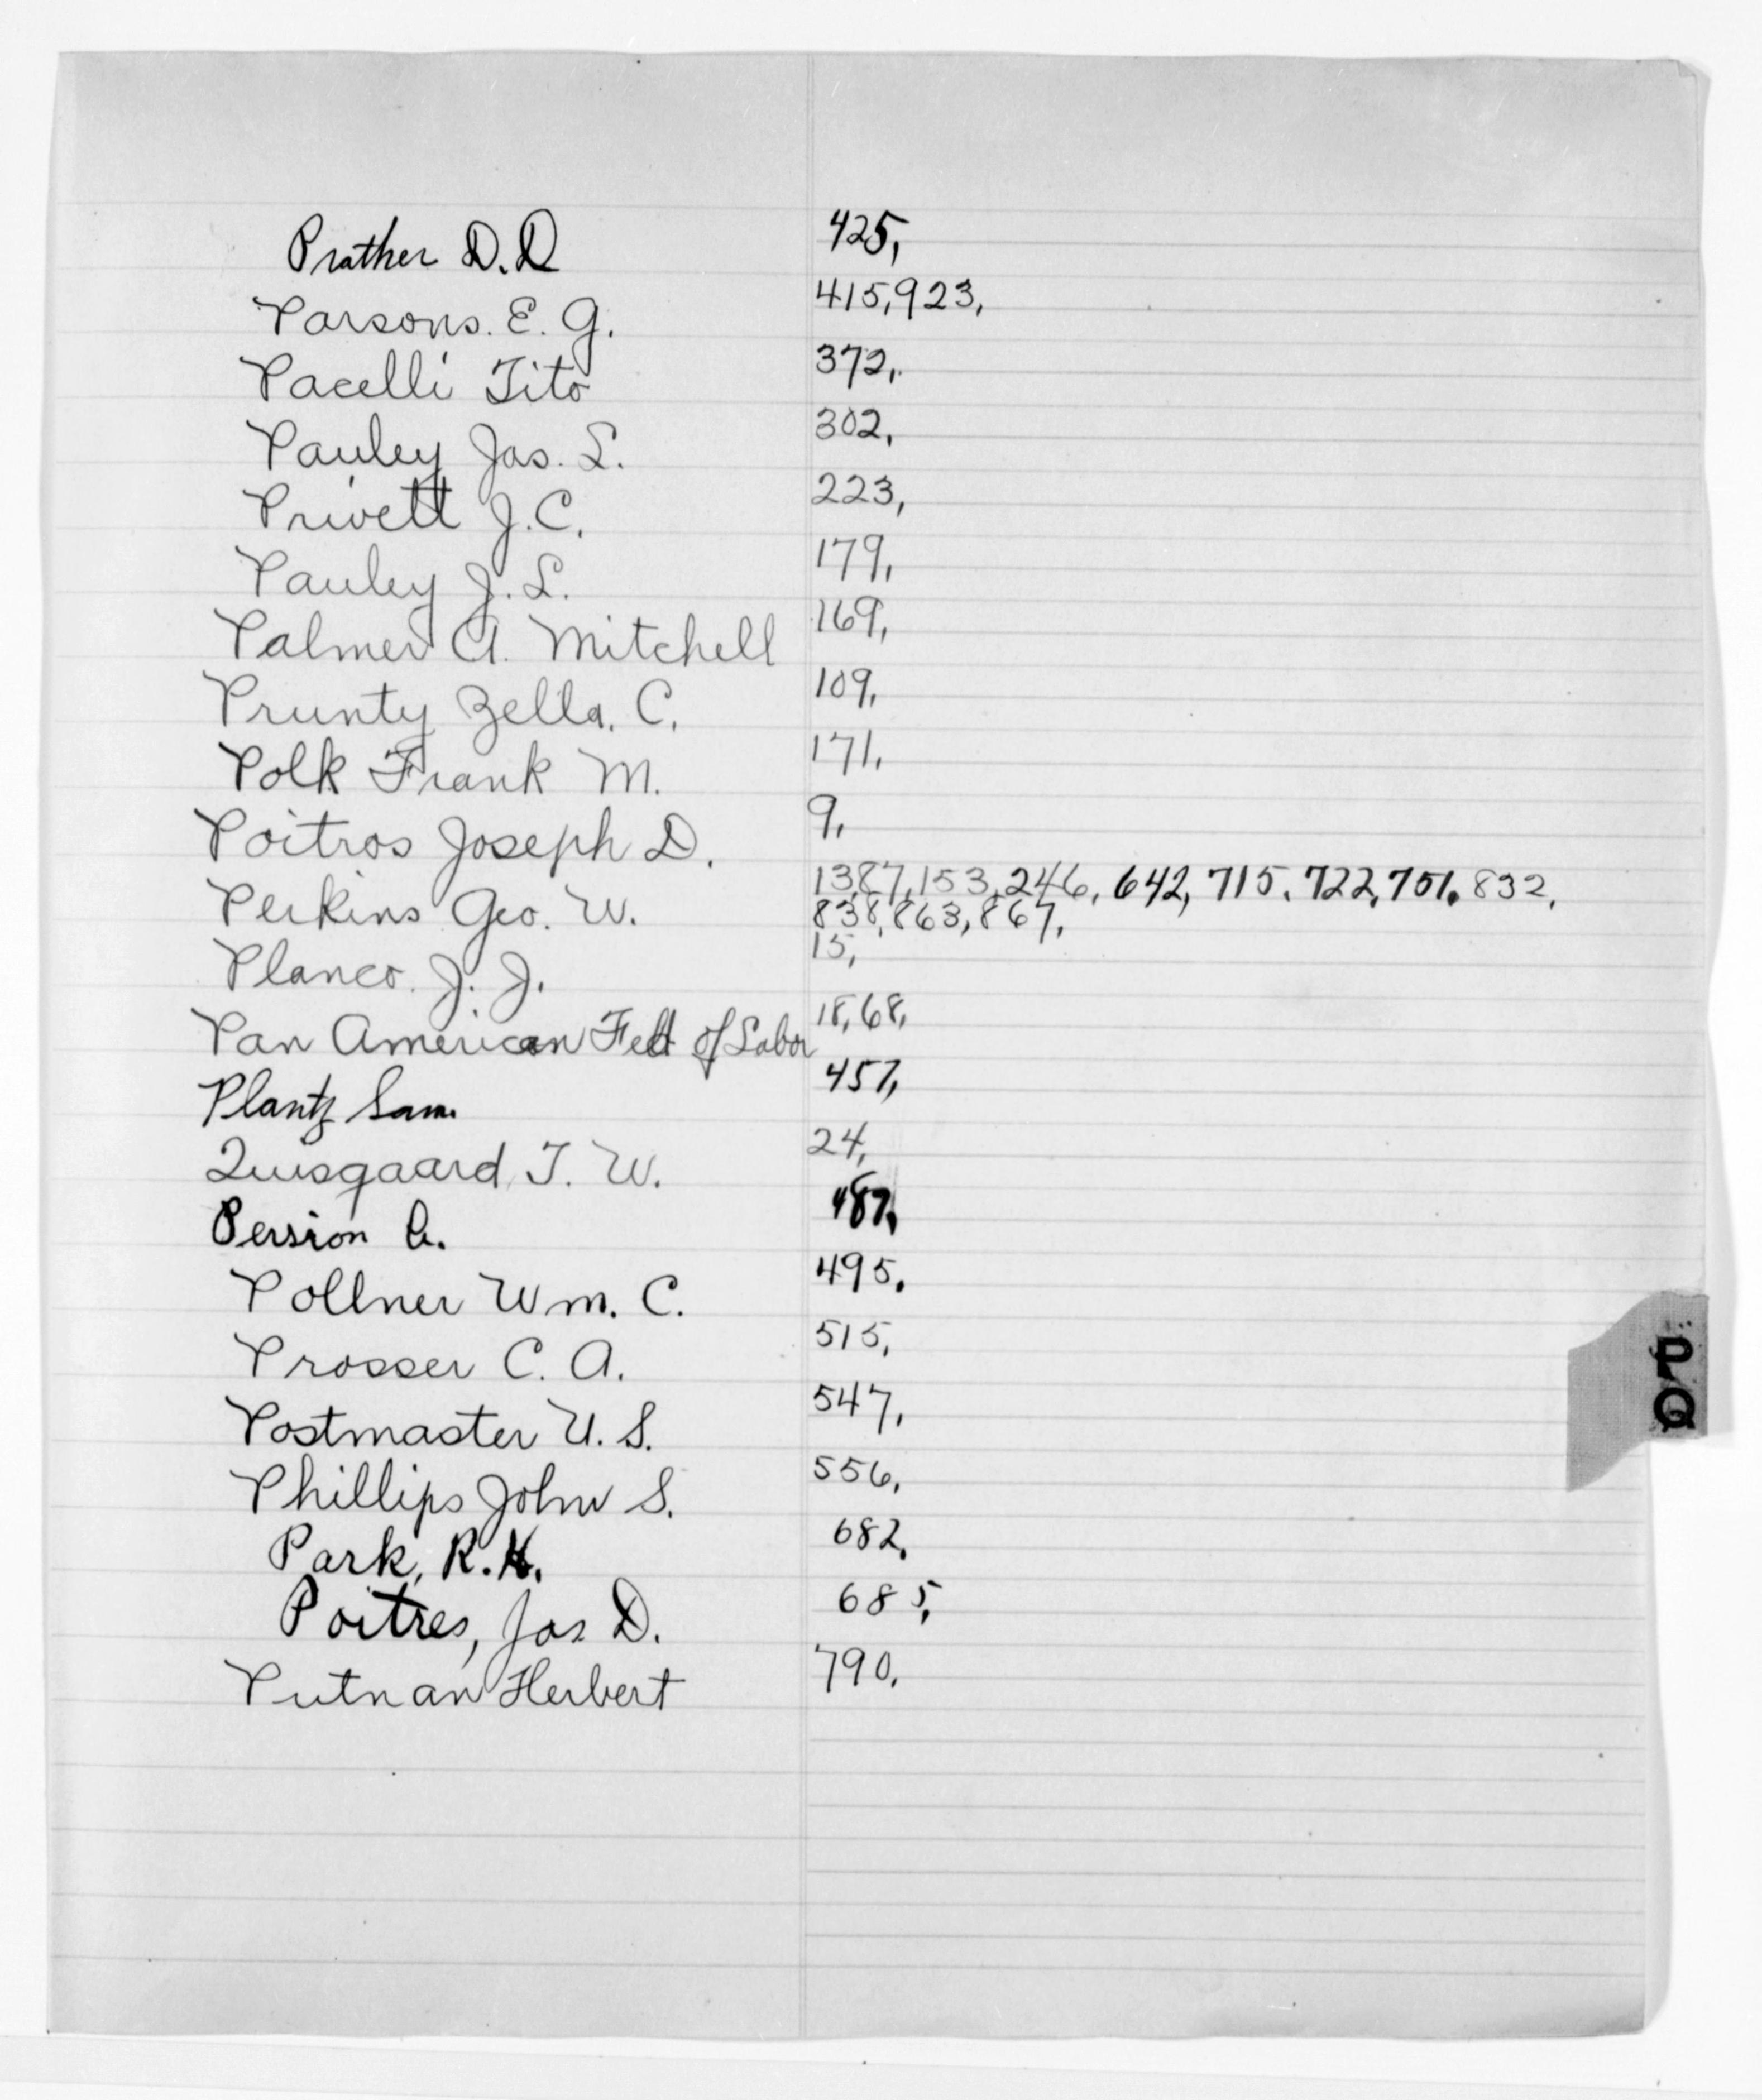 Prather D.D 425,
Parsons. E. G. 415, 923,
Pacelli Tito 372,
Pauley Jas. L. 302,
Privett J.C. 223,
Pauley J. L. 179,
Palmer A. Mitchell 169,
Prunty Zella. C. 109,
Polk Frank M. 171,
Poitros Joseph D. 9,
Perkins Geo. W. 13,87,153,246, 642, 715. 722, 751. 832,
838, 863, 867,
Planco. J. J. 15,
Pan American Fed of Labor 18, 68,
Plantz Sam. 457,
Quisgaard T. W. 24,
Persion 487,
Pollner Wm. C. 495.
Prosser C. A. 515,
Postmaster U. S. 547,
Phillips John S. 556,
Park, R.H. 682.
Poitres, Jas D. 685,
Putnan Herbert 790.
P
Q